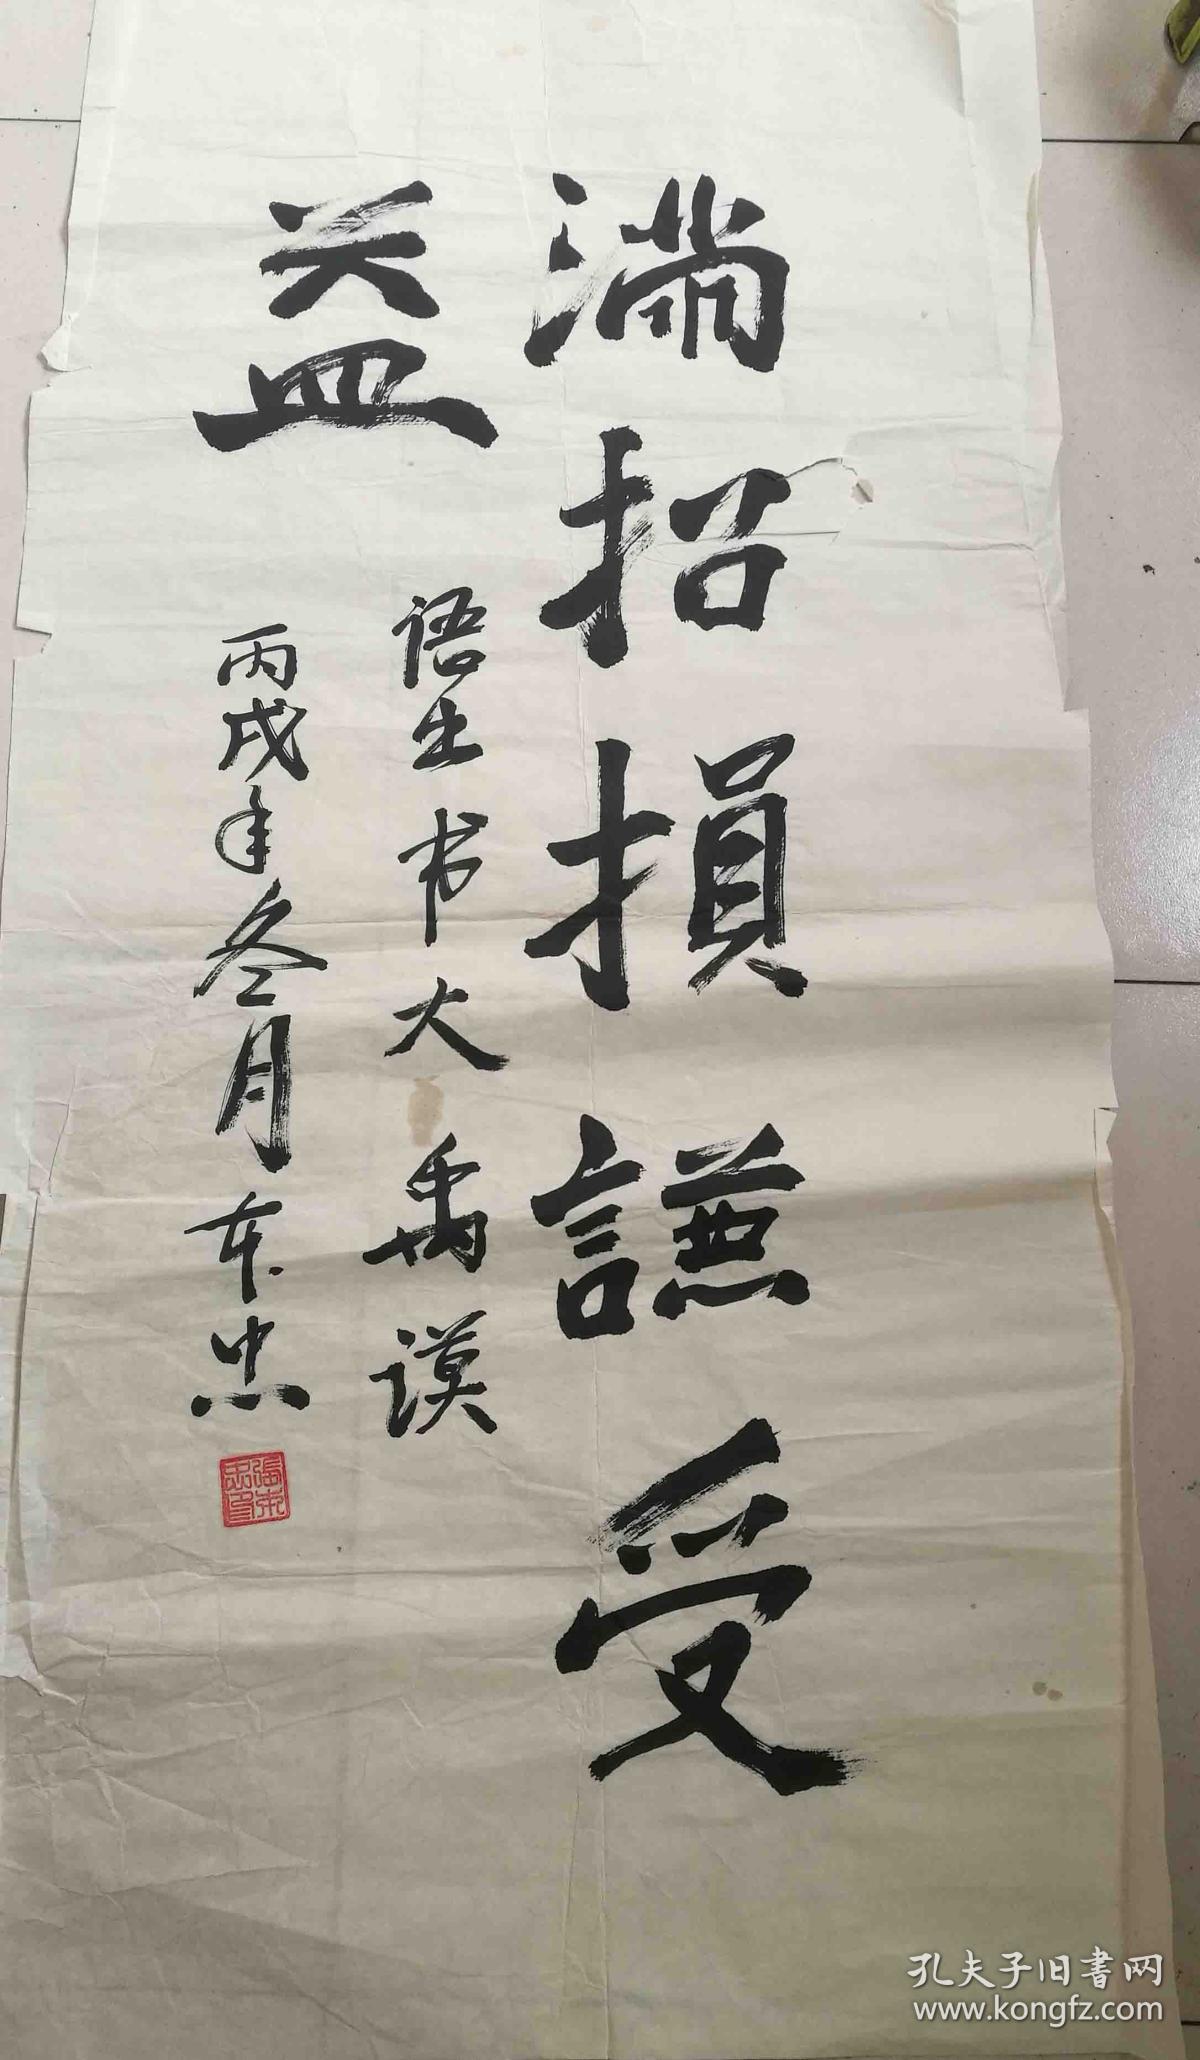 满招損謙受
益
语出书大禹谟
丙戌年冬月东忠
張东忠印
孔夫子旧書网
www.kongfz.com